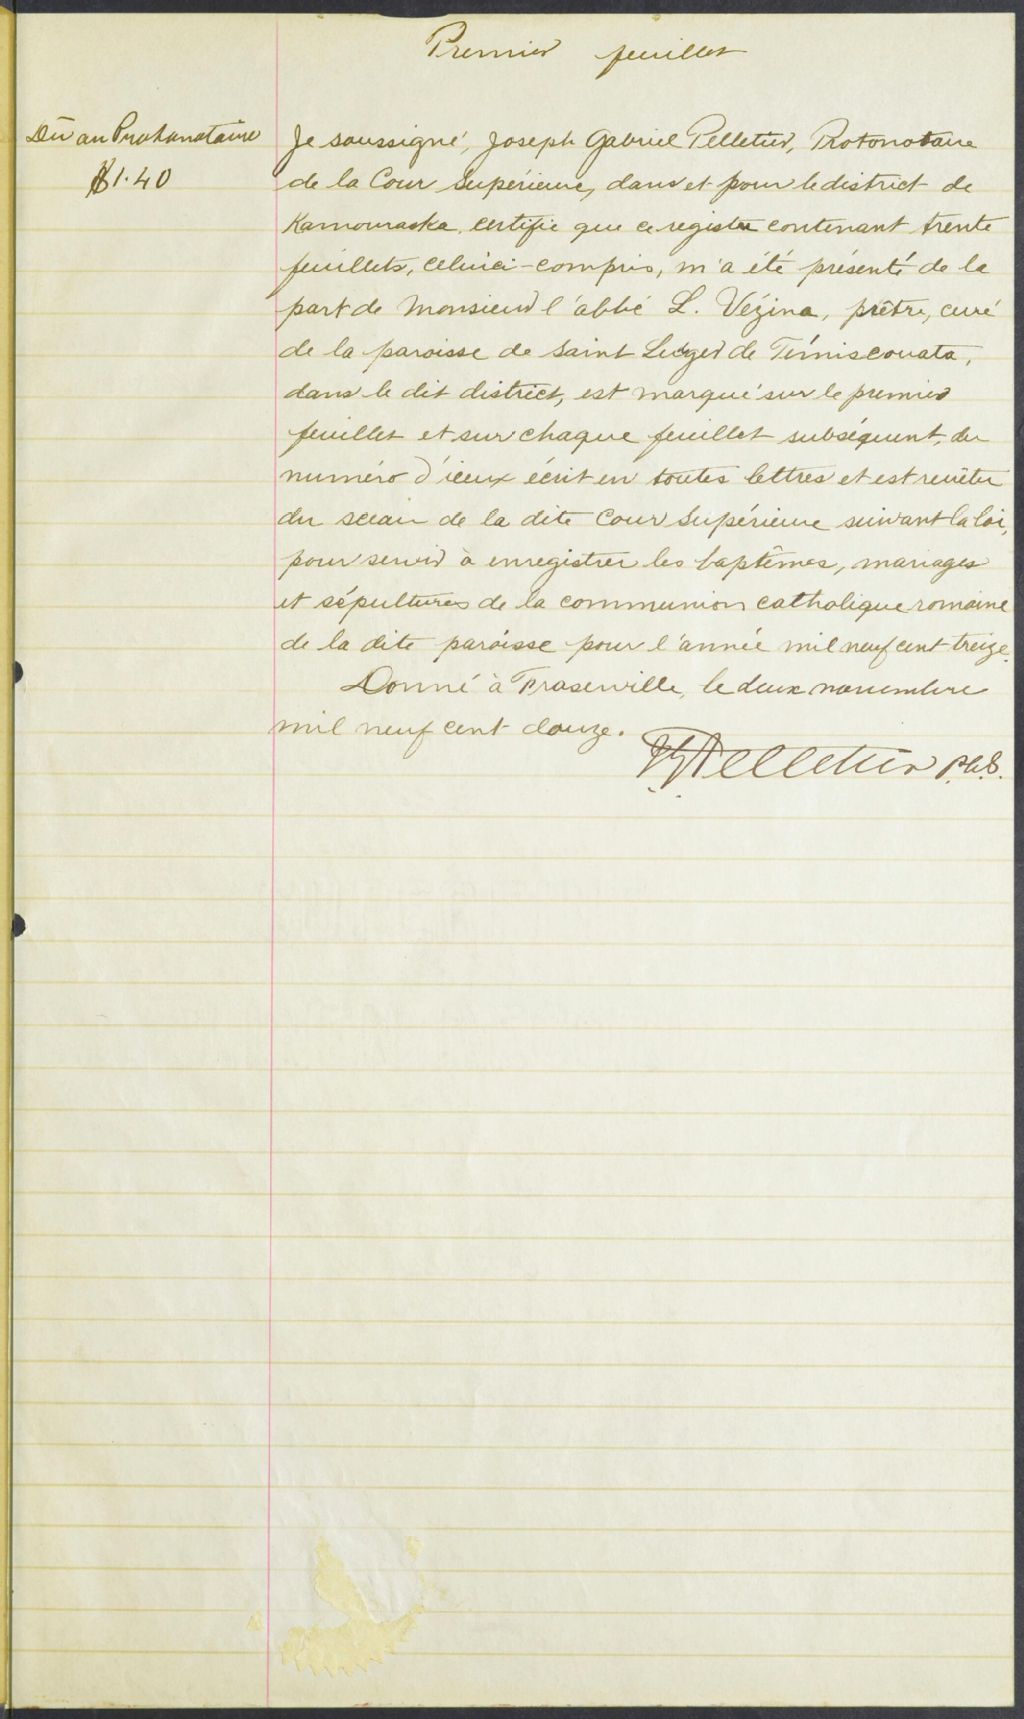 Premier feuillet
Dû au Protonotaire
$1.40
Je soussigné, Joseph Gabriel Pelletier, Protonotaire
de la Cour Supérieure, dans et pour le district de
Kamouraska, certifie que ce registre contenant trente
feuillets, celui-ci-compris, m'a été présenté de la
part de Monsieur l'abbé L. Vézina, prêtre, curé
de la paroisse de Saint Ludger de Témiscouata,
dans le dit district, est marqué sur le premier
feuillet et sur chaque feuillet subséquent, du
numéro d'iceux écrit en toutes lettres et est revêtu
du sceau de la dite Cour Supérieure suivant la loi,
pour servir à enregistrer les baptêmes, mariages
et sépultures de la communion catholique romaine
de la dite paroisse pour l'année mil neuf cent treize.
Donné à Fraserville, le deux novembre
mil neuf cent douze.
JGPelletier P.C.S.